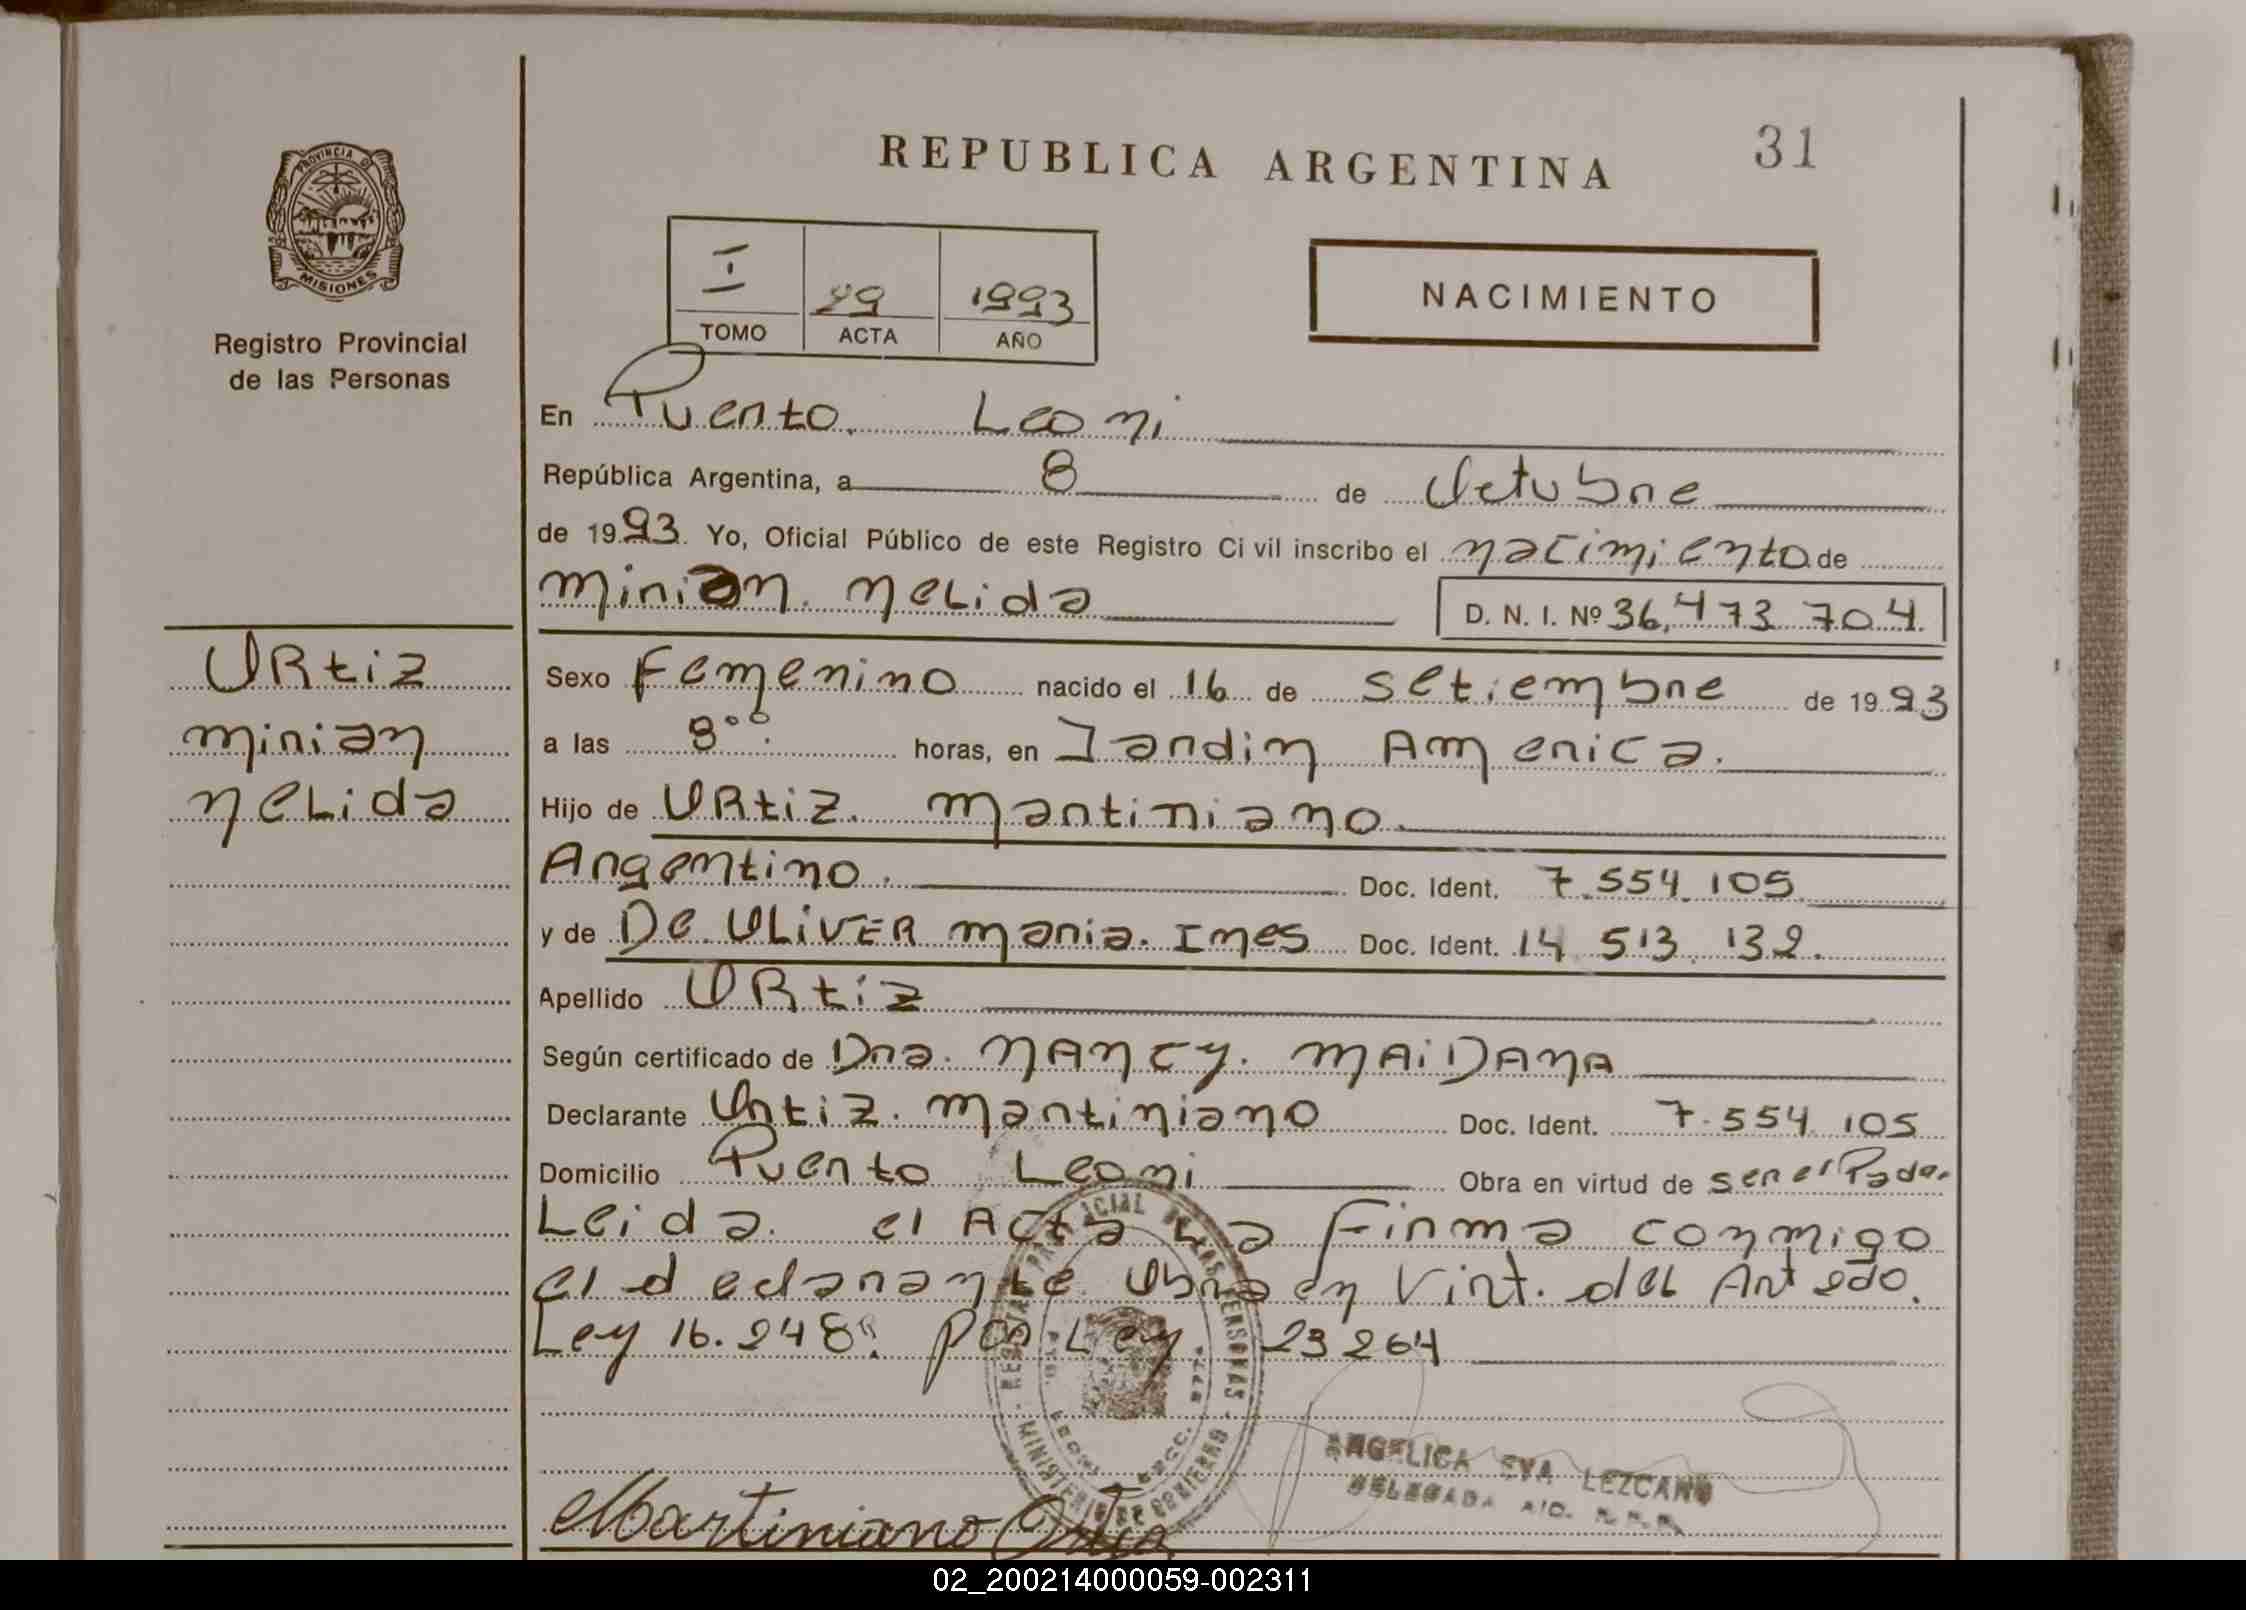 REPUBLICA ARGENTINA
31
PROVINCIA DE
MISIONES
Registro Provincial
de las Personas
I 29 1993
TOMO ACTA AÑO
NACIMIENTO
En Puerto Leoni
República Argentina, a 8 de Octubre
de 1993. Yo, Oficial Público de este Registro Civil inscribo el nacimiento de
Mirian Nelida
D. N. I. Nº 36,473 704.
Ortiz
Mirian
Nelida
Sexo Femenino nacido el 16 de Setiembre de 1993
a las 8°° horas, en Jardin America.
Hijo de ORtiZ. Martiniano.
Argentino. Doc. Ident. 7.554.105
y de De OLiVER Maria. Ines Doc. Ident. 14 513 132.
Apellido ORtiz
Según certificado de Dra. NANCY. MAiDANA
Declarante Ortiz. Martiniano Doc. Ident. 7.554 105
Domicilio Puerto Leoni Obra en virtud de ser el Padre.
Leida el Acta La Firma conmigo
el declarante. Obra en Virt. del Art
Ley 16.248. por Ley 23264
REGISTRO PROVINCIAL DE LAS PERSONAS
MINISTERIO DE GOBIERNO
Martiniano Ortiz
ANGELICA EVA LEZCANO
DELEGADA
02_200214000059-002311